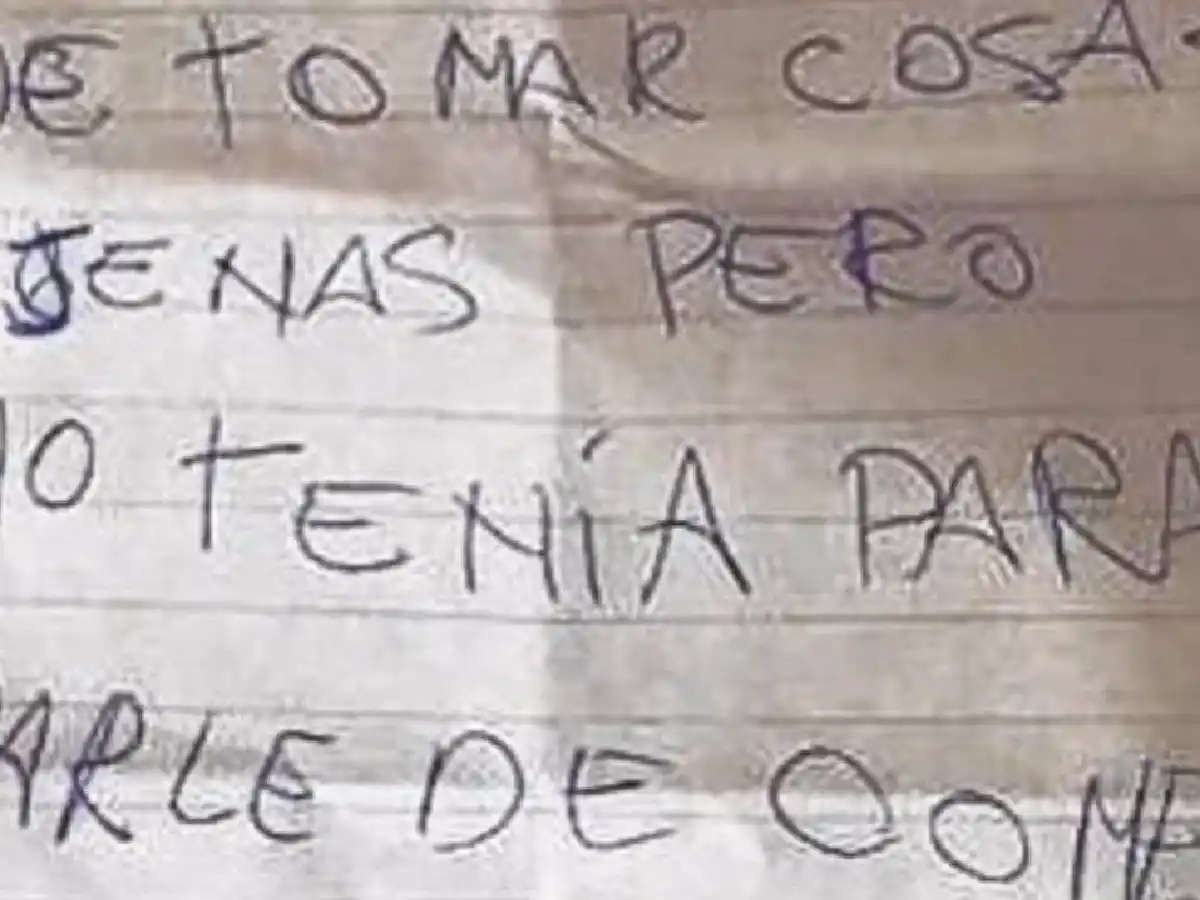 DE TOMAR COSA
JENAS PERO
NO TENÍA PARA
ARLE DE COME